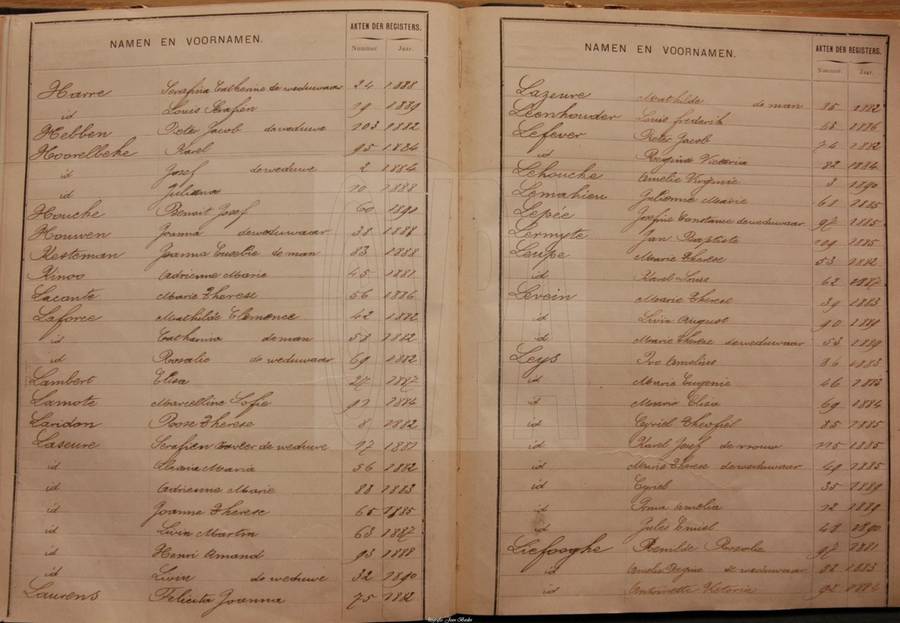 NAMEN EN VOORNAMEN. AKTEN DER REGISTERS.
Nummer Jaar.
Harre Serafina Catherine de weduwaar 24 1888
id Louis Serafin 19 1889
Hebben Pieter Jacob de weduwe 103 1882
Hoorelbeke Karel 95 1884
id Josef de weduwe 2 1884
id Juliana 10 1888
Houche Benoit Josef 60 1890
Houwen Joanna de weduwaar 38 1888
Kesteman Joanna Eusebie de man 83 1888
Kinoo Adrienne Marie 45 1881
Lacante Marie Therese 56 1886
Laforce Mathilde Clemence 42 1882
id Catharina de man 58 1882
id Rosalie de weduwaar 69 1882
Lambert Elisa 27 1887
Lamote Marcelline Sofie 1884
Landon Rose Therese 8 1882
Laseure Serafien de weduwe 17 1881
id Maria 56 1882
id Adrienne Marie 83 1883
id Joanne Therese 65 1885
id Livin Martin 63 1887
id Henri Amand 93 1888
id Livin de weduwe 32 1890
Laurens Felicita Joanna 75 1882
NAMEN EN VOORNAMEN. AKTEN DER REGISTERS.
Nummer Jaar.
Lazeure Mathilde de man 85 1882
Leenhouder Louis frederik 63 1886
Lefever Pieter Jacob 74 1882
id Regina Victoria 82 1884
Lehouche Amelie Virginie 3 1890
Lemahieu Julienne Marie 68 1885
Lepée Josefie Constance de weduwaar 97 1885
Lermyte Jan Baptiste 109 1885
Leupe Marie Therese 53 1882
id Karel Louis 62 1887
Levein Marie Therese 39 1883
id Livin August 90 1889
id Marie Therese de weduwaar 53 1889
Leys Ivo Amelius 86 1883
id Marie Eugenie 46 1883
id Maria Elisa 69 1884
id Cyriel Theofiel 85 1885
id Karel Josef de vrouw 115 1885
id Marie Therese de weduwaar 49 1885
id Cyriel 35 1889
id Irma Amelia 12 1889
id Jules Emiel 48 1890
Liefooghe Remilde Rosalie 97 1881
id Amelie Regine de weduwaar 82 1883
id Antoinette Victoria 92 1884